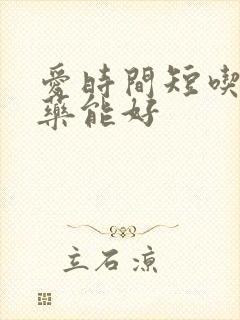 愛時間短喫
藥能好
立石涼